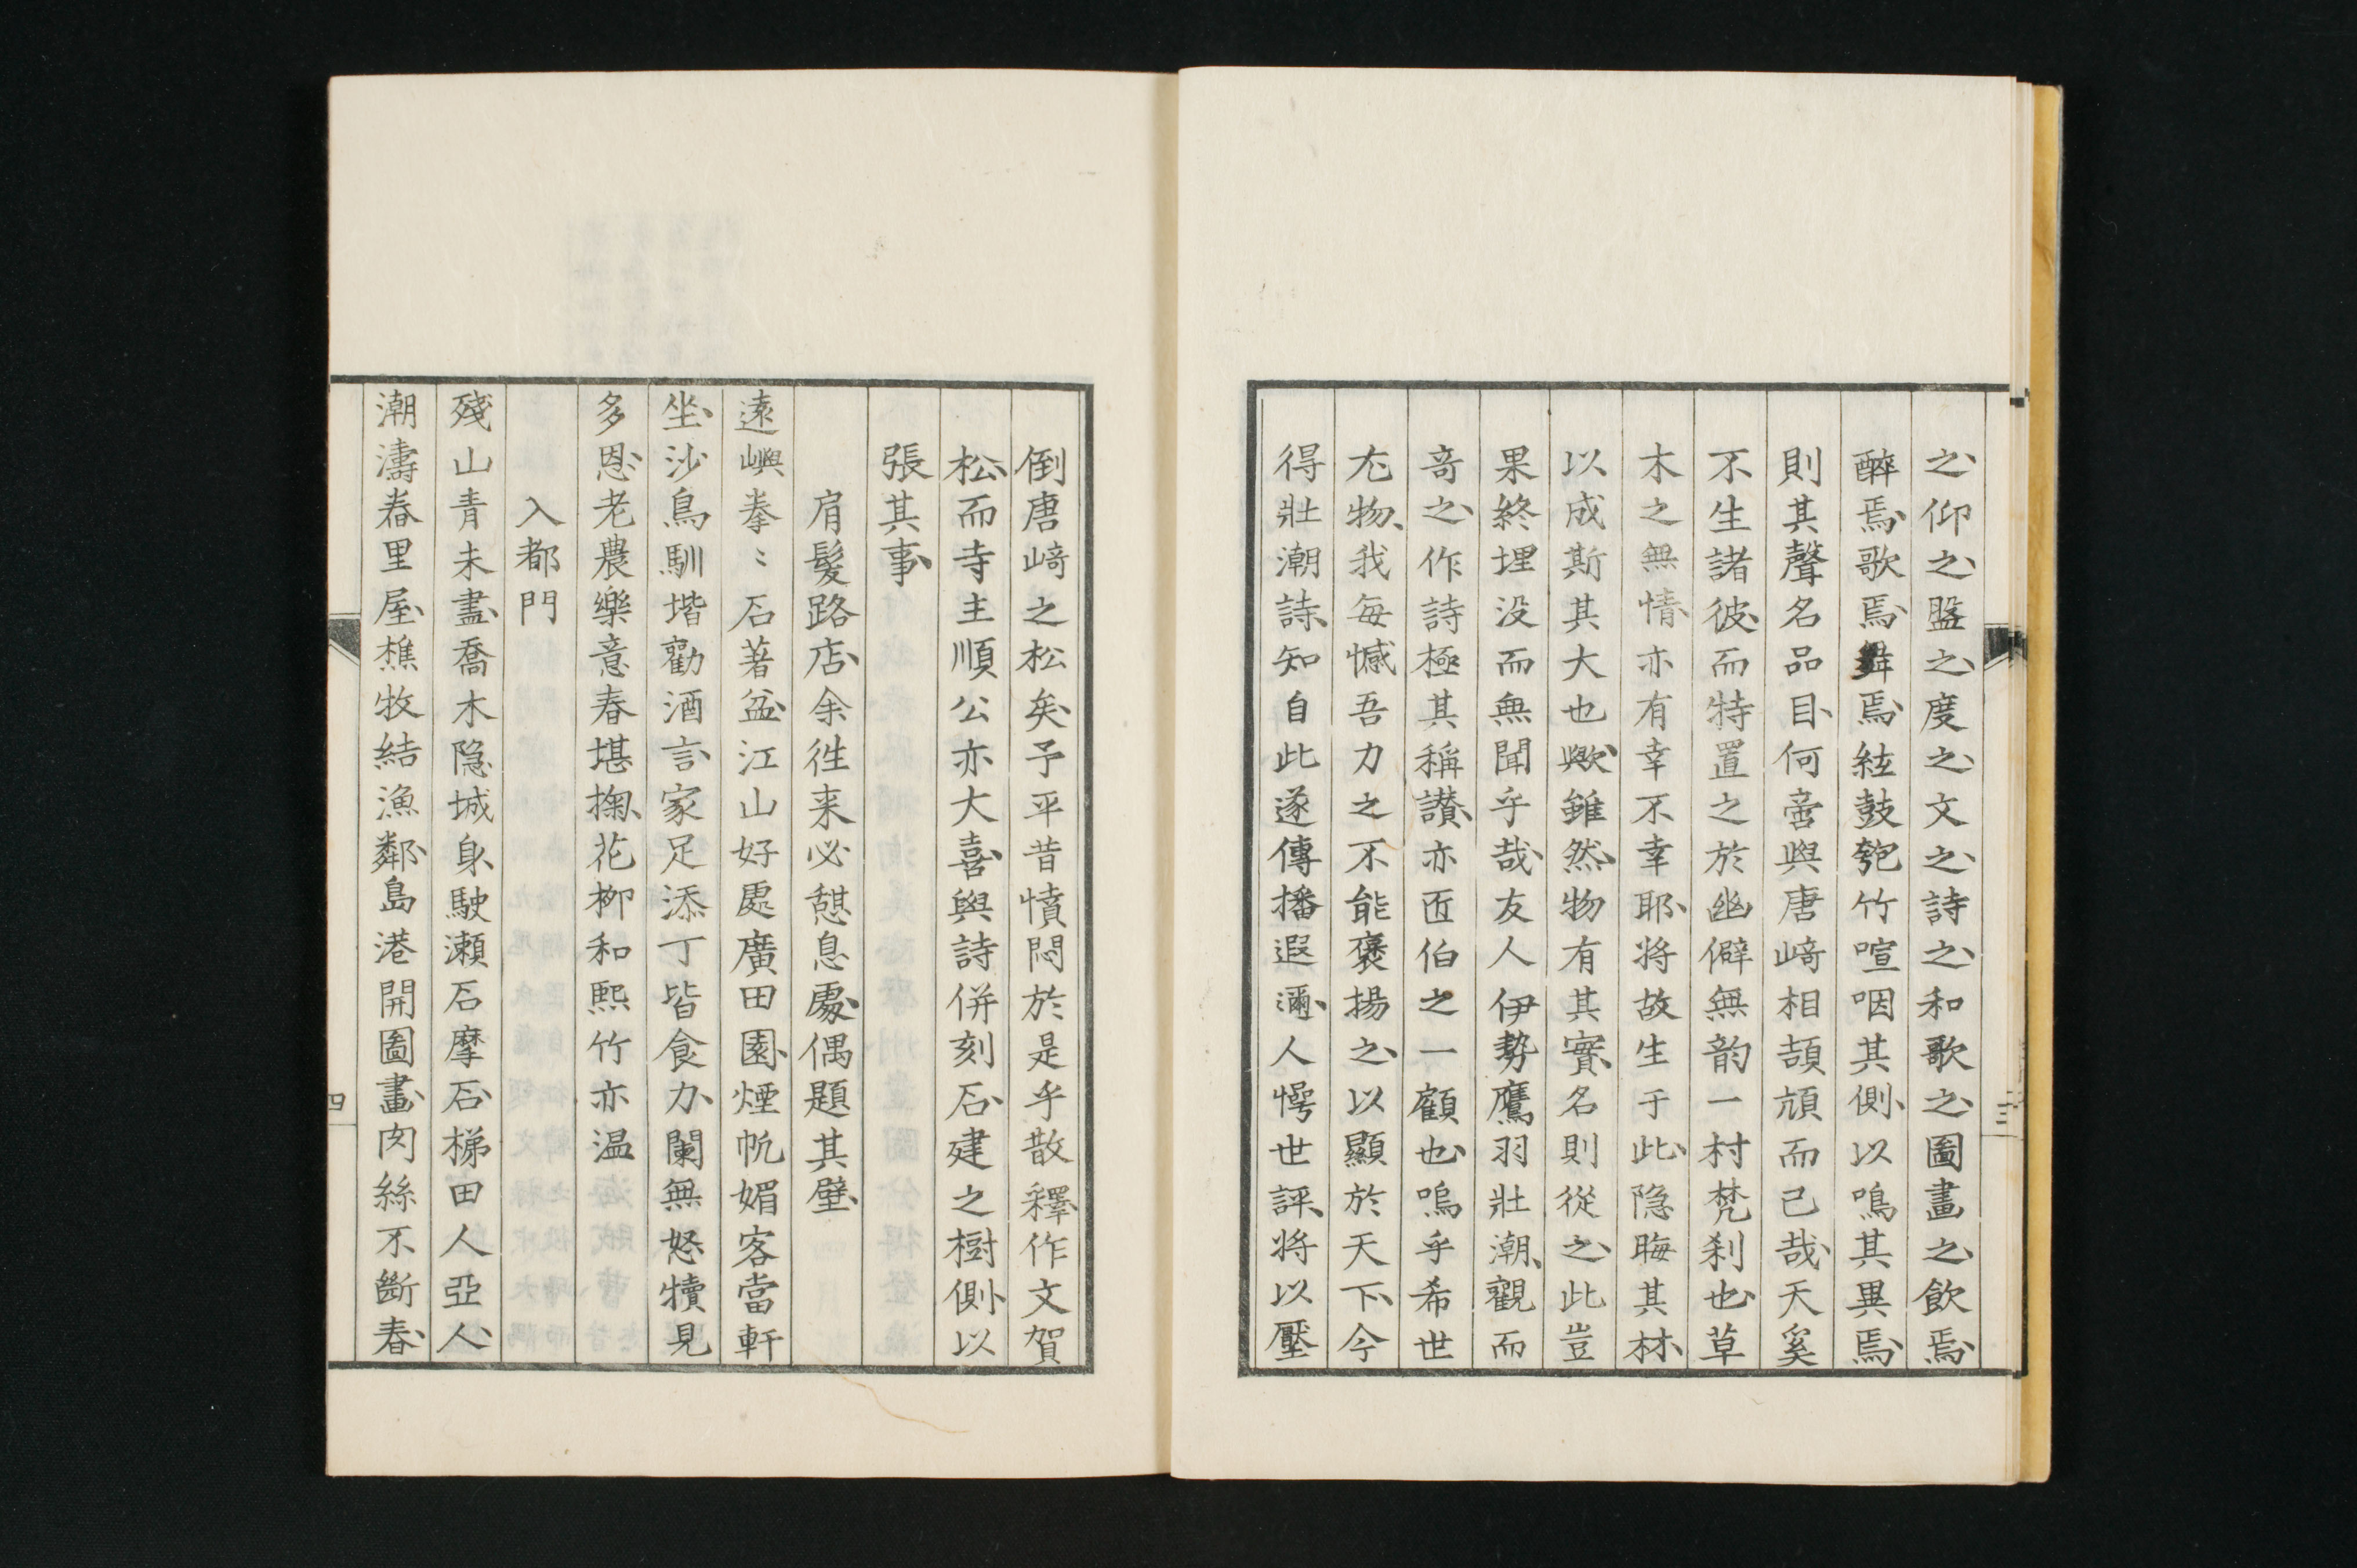 之仰之盬之度之文之詩之和歌之圖畫之飮焉
醉焉歌焉舞焉絃鼓匏竹喧咽其側以鳴其異焉
則其聲名品目何啻與唐﨑相頡頏而已哉天奚
不生諸彼而特置之於幽僻無韵一村梵刹也草
木之無情亦有幸不幸耶将故生于此隠晦其材
以成斯其大也歟雖然物有其實名則從之此豈
果終埋没而無聞乎哉友人伊勢鷹羽壯潮觀而
竒之作詩極其稱讃亦匠伯之一顧也嗚乎希世
尤物我每憾吾力之不能褒揚之以顯於天下今
得壯潮詩知自此遂傳播遐邇人愕世評将以壓
倒唐﨑之松矣予平昔憤悶於是乎散釋作文賀
松而寺主順公亦大喜與詩併刻石建之樹側以
張其事
肩髮路店余徃来必憩息處偶題其壁
遠嶼拳〻石著盆江山好處廣田園煙帆媚客當軒
坐沙鳥馴堦勸酒言家足添丁皆食力闌無怒犢見
多恩老農樂意春堪掬花柳和熙竹亦温
入都門
殘山青未盡喬木隠城身駛瀬石摩石梯田人亞人
潮濤春里屋樵牧結漁鄰島港開圖畫肉絲不斷春
三
四